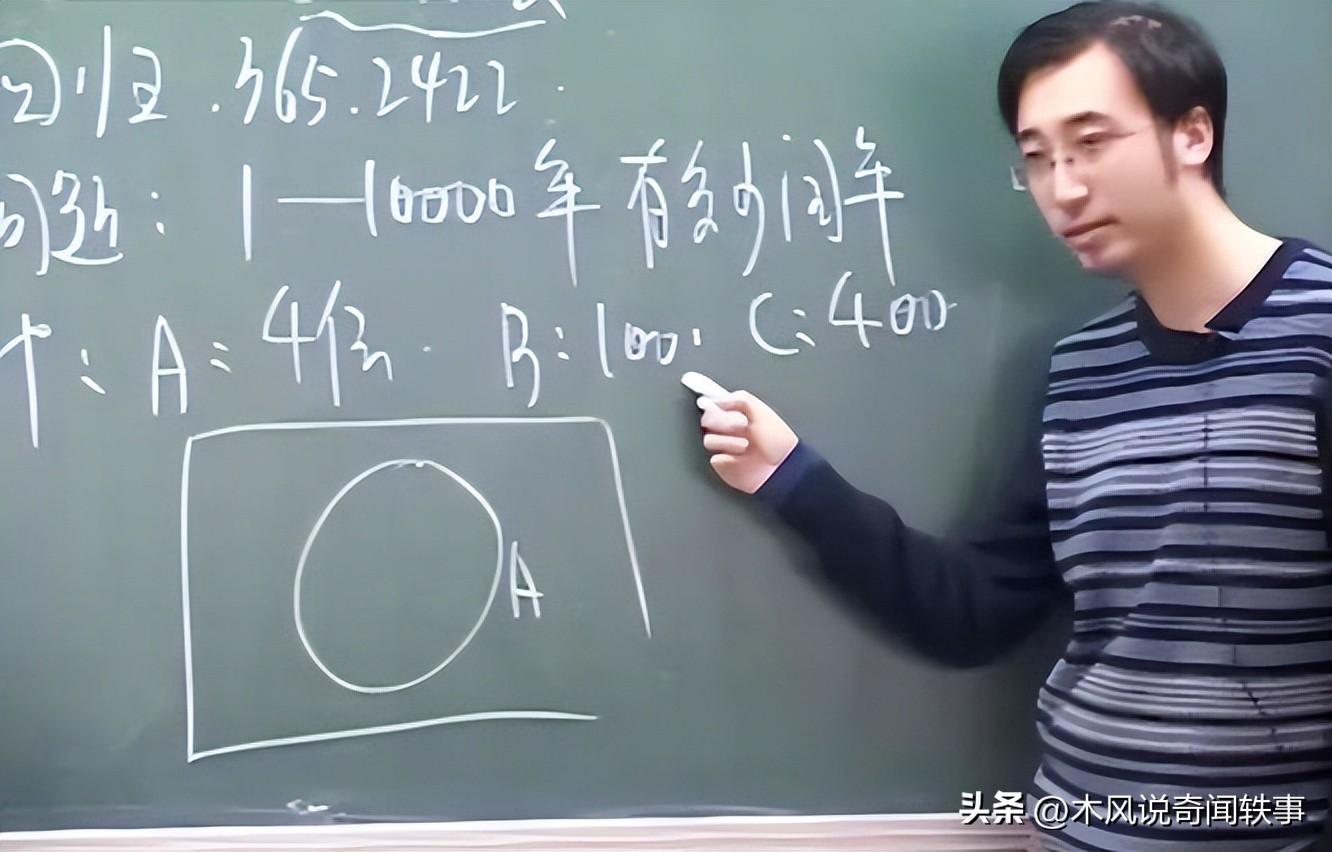 回归.365.2422.
问题: 1—10000年有多少闰年
A: 4倍. B: 100. C: 400
A
头条 @木风说奇闻轶事